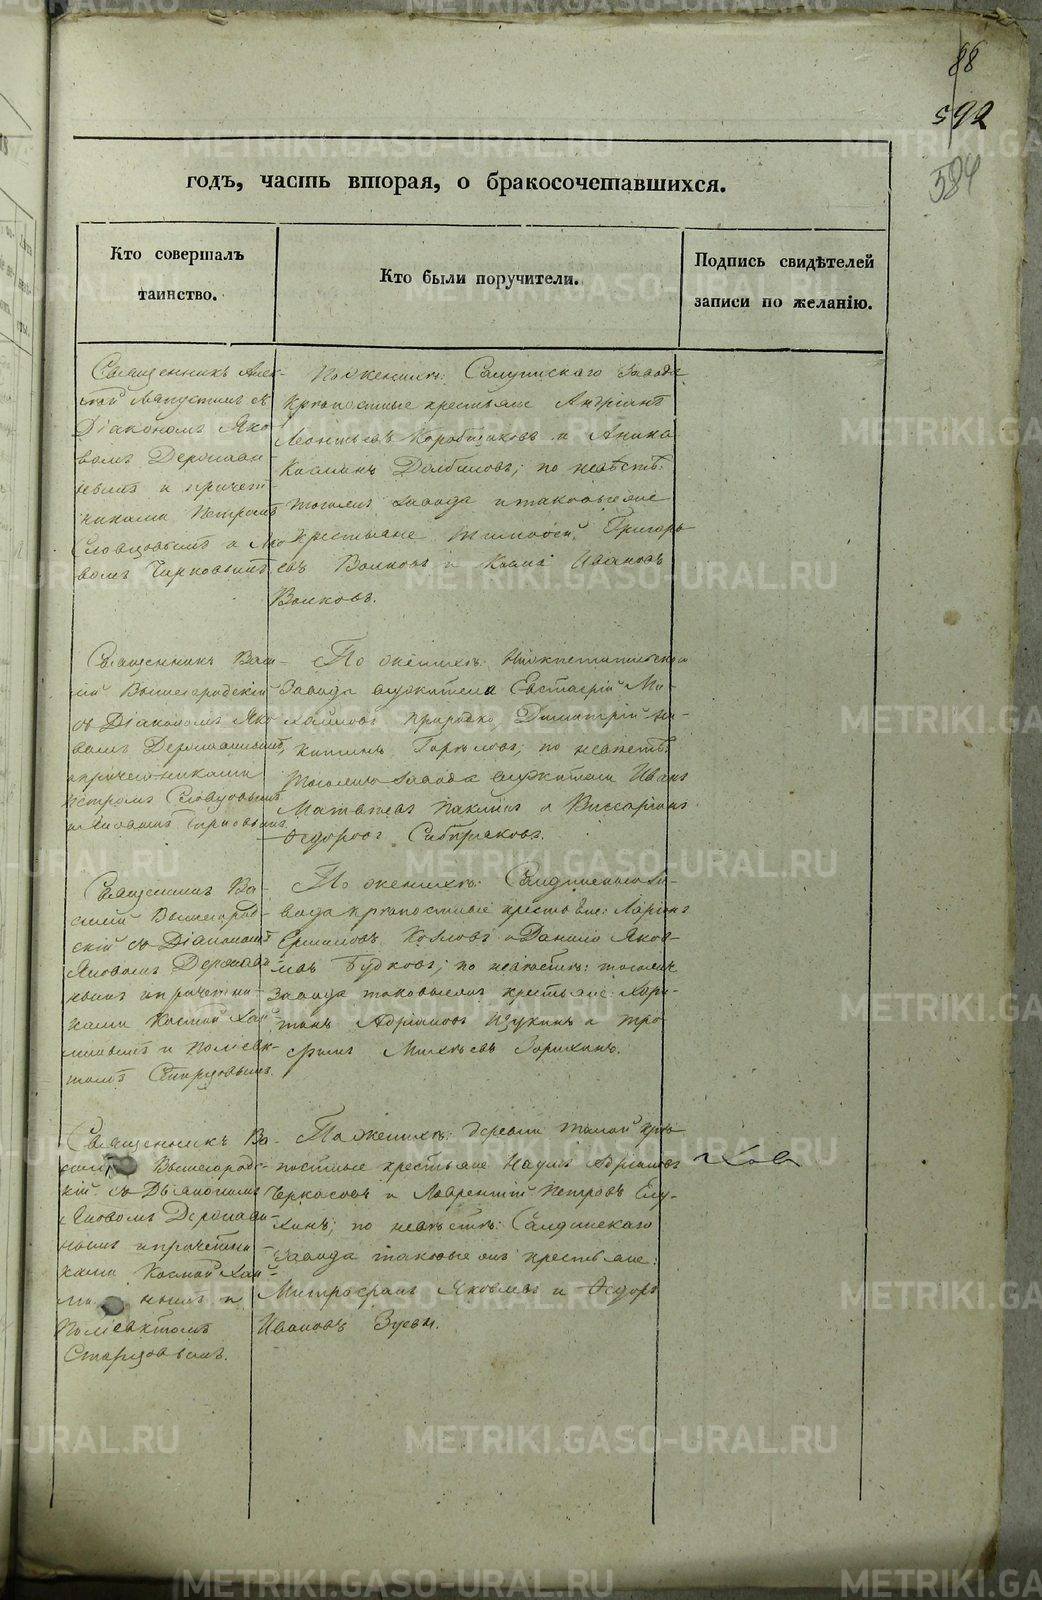 88
592
584
годъ, часть вторая, о бракосочетавшихся.
Кто совершалъ
таинство.
Кто были поручители.
Подпись свидѣтелей
записи по желанію.
Священникъ Алек-
сѣй съ
Діакономъ Яко
вомъ Держави
нымъ и причет
никами Петромъ
Словцовымъ и Яко
вомъ Чирковымъ
По женихѣ: Салдинскаго Завода
крѣпостные крестьяне
Леонтьевъ Коробщиковъ и Аника
Козминъ Долбиловъ; по невѣстѣ:
тогоже завода и таковые же
крестьяне Тимофей Григорь
евъ Волковъ и Козма Ивановъ
Волковъ.
Священникъ Васи-
лій Вышегородскій
съ Діакономъ Яко
вомъ Державинымъ,
и причетниками
Петромъ Словцовымъ
и Яковомъ Чирковымъ
По женихѣ:
Завода служители Евстафій Ми-
хайловъ Димитрій Ни-
китинъ Горѣловъ; по невѣстѣ:
тогоже завода служители Иванъ
Матвѣевъ Паклинъ и Виссаріонъ
Ѳедоровъ Сибиряковъ.
Священникъ Ва-
силій Вышегород-
скій съ Діакономъ
Яковомъ Держави
нымъ и причетни-
ками Космой Хай-
минымъ и Поліевк-
томъ Старцовымъ.
По женихѣ: Салдинскаго За-
вода крѣпостные крестьяне: Ларіонъ
Ермиловъ Козловъ и Данило Яков-
левъ Будковъ; по невѣстѣ: тогоже
Завода таковыеже крестьяне: Хари-
тонъ Адріановъ Щукинъ и Тро-
фимъ Михѣевъ Зорихинъ.
Священникъ Ва-
силій Вышегородс-
кій съ Діакономъ
Яковомъ Держави-
нымъ и причетни-
ками Космой Хай-
ми нымъ и
Поліевктомъ
Старцовымъ.
По женихѣ: деревни крѣ-
постные крестьяне Наумъ Адріановъ
Черкасовъ и Лаврентій Петровъ Елу-
хинъ; по невѣстѣ: Салдинскаго
Завода таковые же крестьяне:
Митрофанъ Яковлевъ и Ѳедоръ
Ивановъ Зуевы.
METRIKI.GASO-URAL.RU